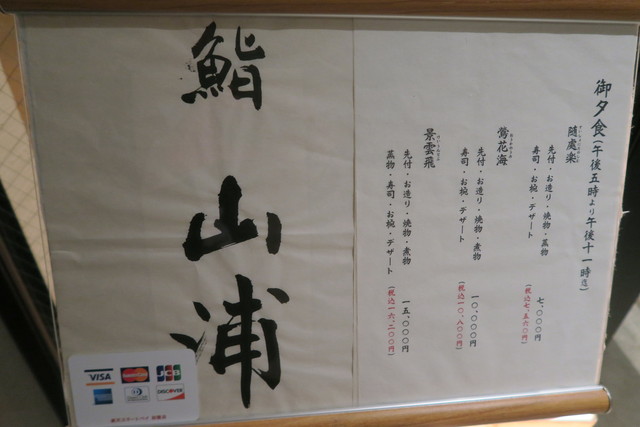 御夕食(午後五時より午後十一時迄)
隨處楽
先付・お造り・焼物・蒸物
寿司・お椀・デザート
七、〇〇〇円
(税込七、五六〇円)
鶯花海
先付・お造り・焼物・煮物
寿司・お椀・デザート
一〇、〇〇〇円
(税込一〇、八〇〇円)
景雲飛
先付・お造り・焼物・煮物
蒸物・寿司・お椀・デザート
一五、〇〇〇円
(税込一六、二〇〇円)
鮨 山浦
VISA
MasterCard
JCB
DISCOVER